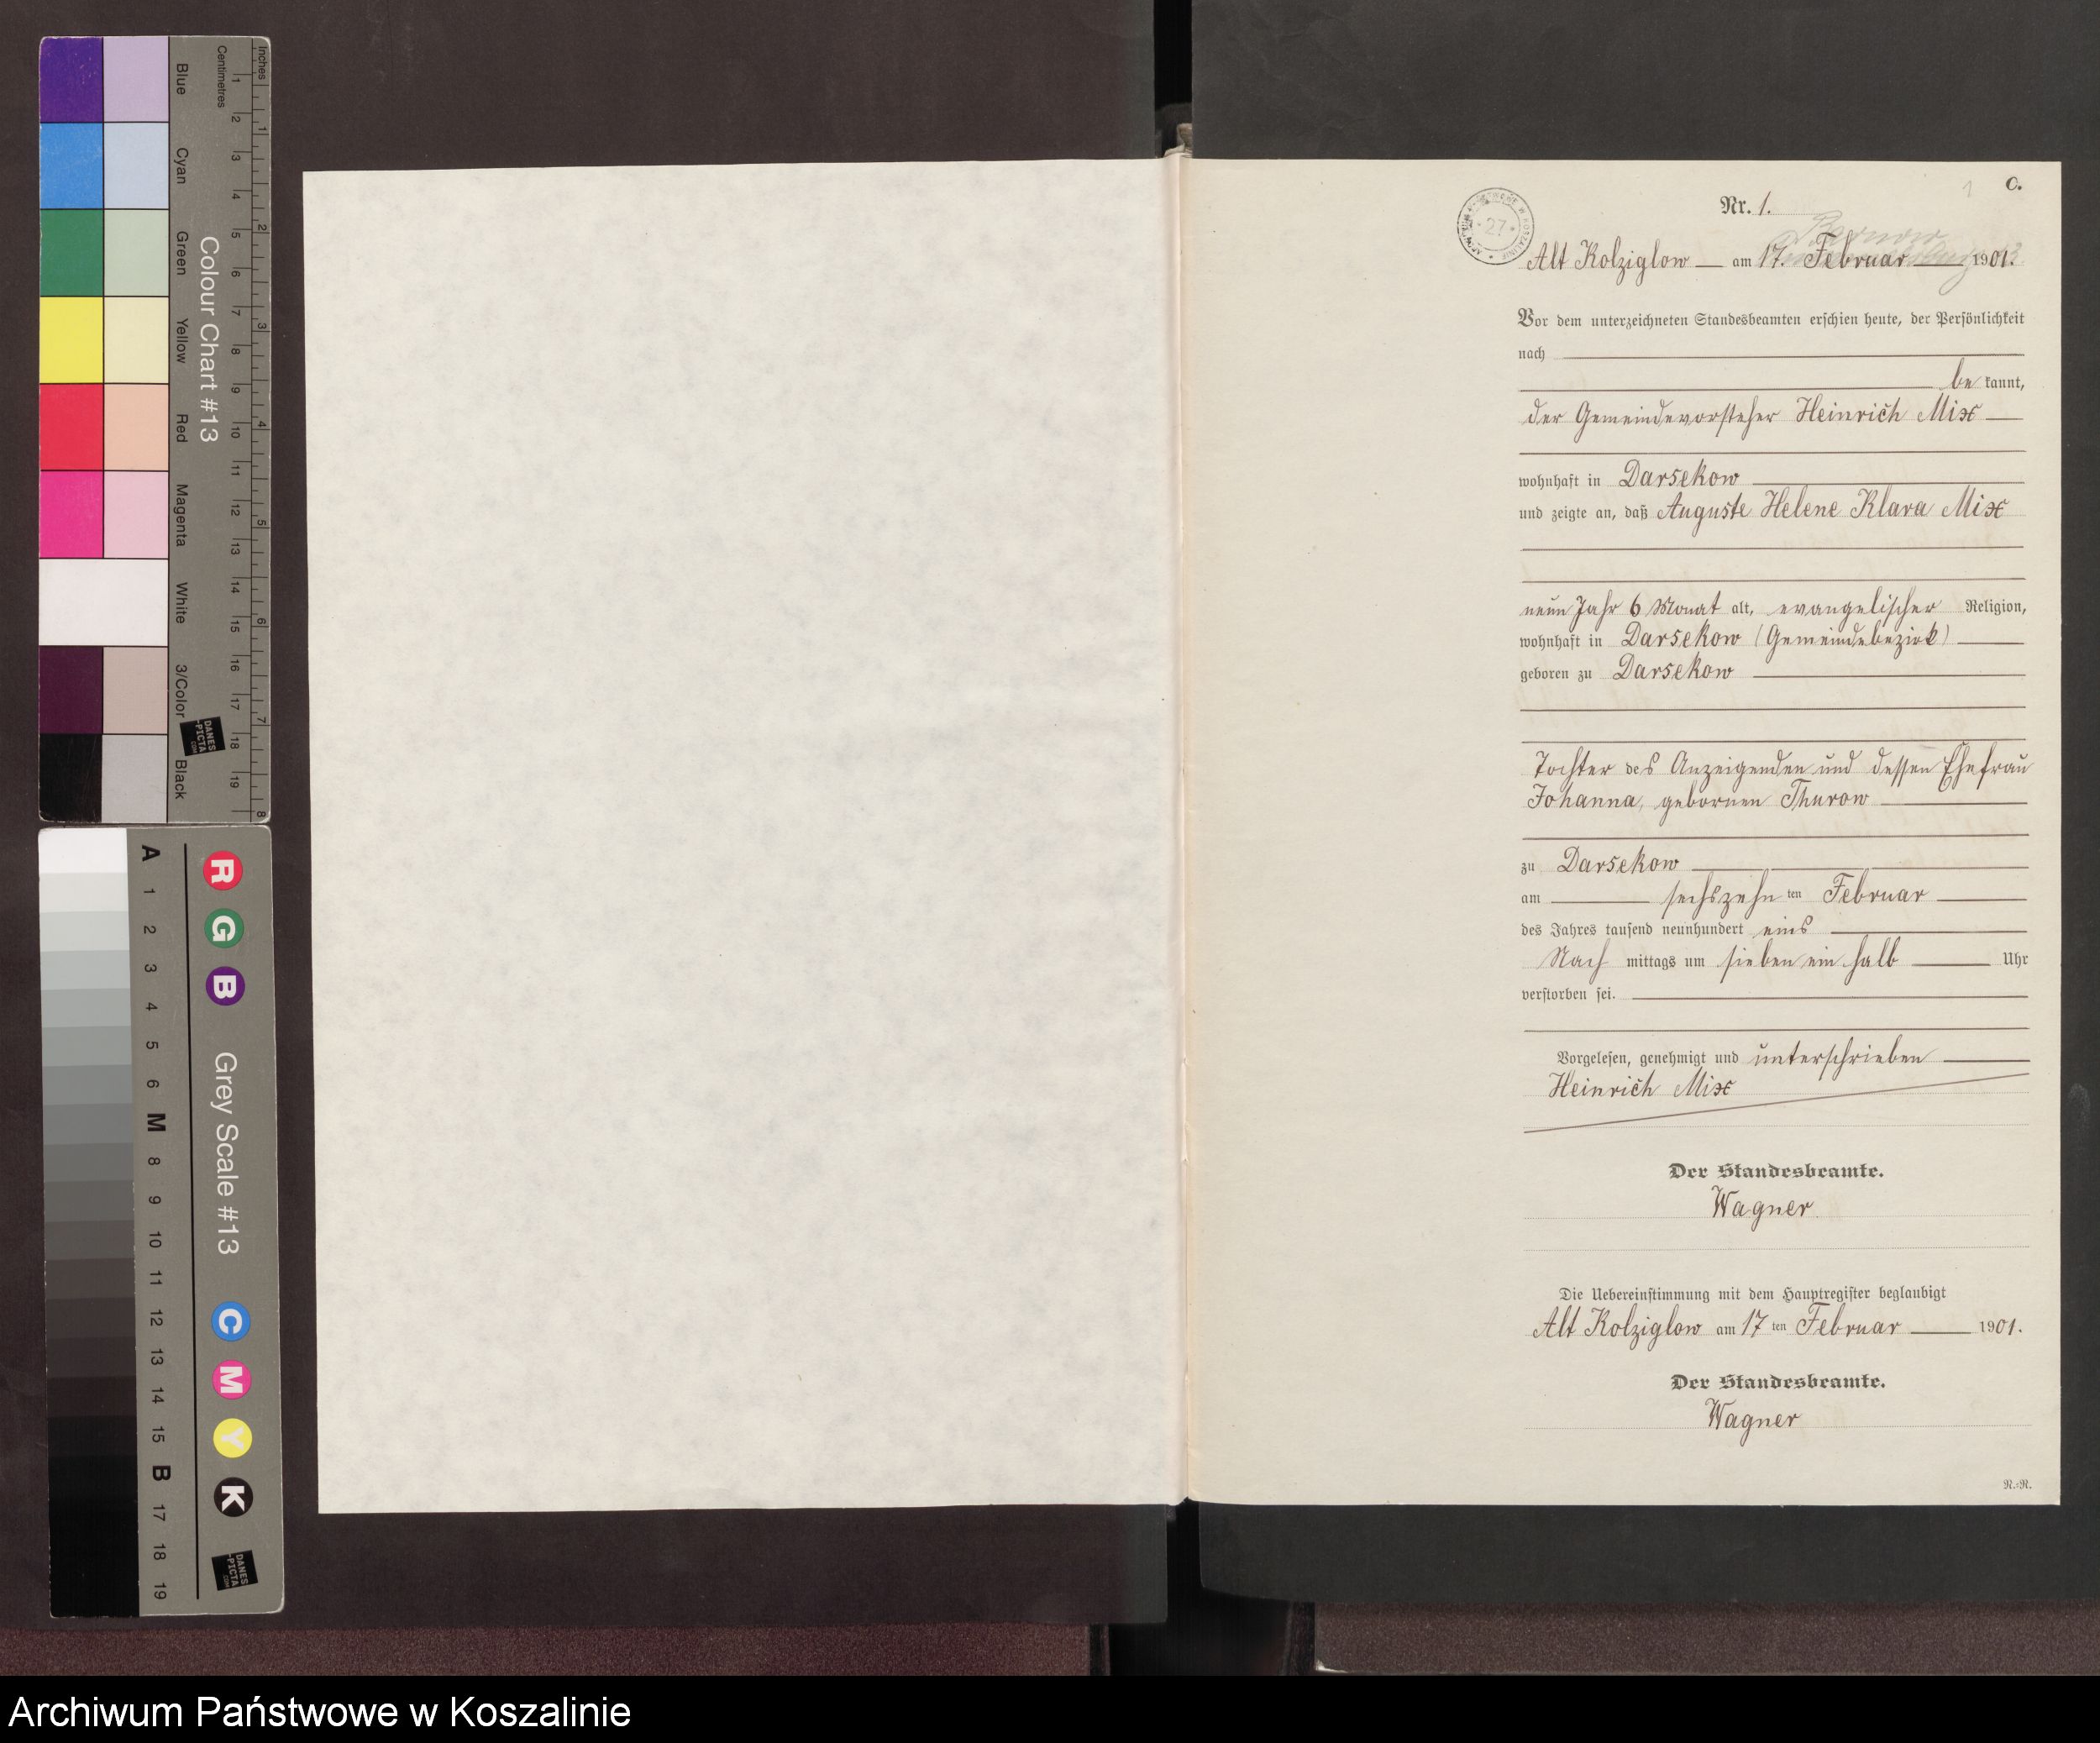 Inches
Centimetres
1 2 3 4 5 6 7 8
1 2 3 4 5 6 7 8 9 10 11 12 13 14 15 16 17 18 19
Colour Chart #13
Blue
Cyan
Green
Yellow
Red
Magenta
White
3/Color
Black
DANES
-PICTA
.COM
A
1
2
3
4
5
6
M
8
9
10
11
12
13
14
15
B
17
18
19
R
G
B
Grey Scale #13
C
M
Y
K
DANES
-PICTA
.COM
C.
1
27
Nr. 1.
Alt Kolziglow am 17. Februar 1901.
Vor dem unterzeichneten Standesbeamten erschien heute, der Persönlichkeit
nach
be kannt,
der Gemeindevorsteher Heinrich Mix
wohnhaft in Darsekow
und zeigte an, daß Auguste Helene Klara Mix
neun Jahr 6 Monat alt, evangelischer Religion,
wohnhaft in Darsekow (Gemeindebezirk)
geboren zu Darsekow
Tochter des Anzeigenden und dessen Ehefrau
Johanna, gebornen Thurow
zu Darsekow
am sechszehn ten Februar
des Jahres tausend neunhundert eins
Nach mittags um sieben ein halb Uhr
verstorben sei.
Vorgelesen, genehmigt und unterschrieben
Heinrich Mix
Der Standesbeamte.
Wagner
Die Uebereinstimmung mit dem Hauptregister beglaubigt
Alt Kolziglow am 17 ten Februar 1901.
Der Standesbeamte.
Wagner
N.=N.
Archiwum Państwowe w Koszalinie